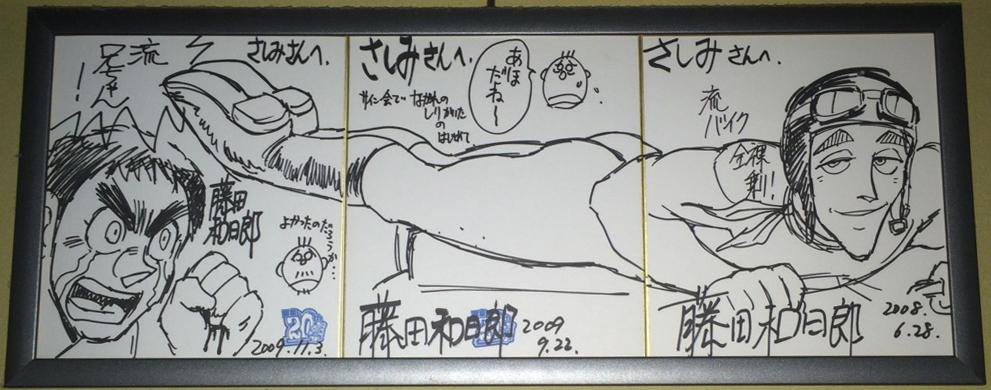 さしみさんへ.
流
兄ちゃん
!
藤田
和日郎
よかったのだろうか…
20
2009.11.3.
さしみさんへ.
あほ
だね〜
サイン会で
はじめて
藤田和日郎
2009
9.22.
さしみさんへ.
流
バイク
全裸
乗り!
藤田和日郎
2008.
6.28.